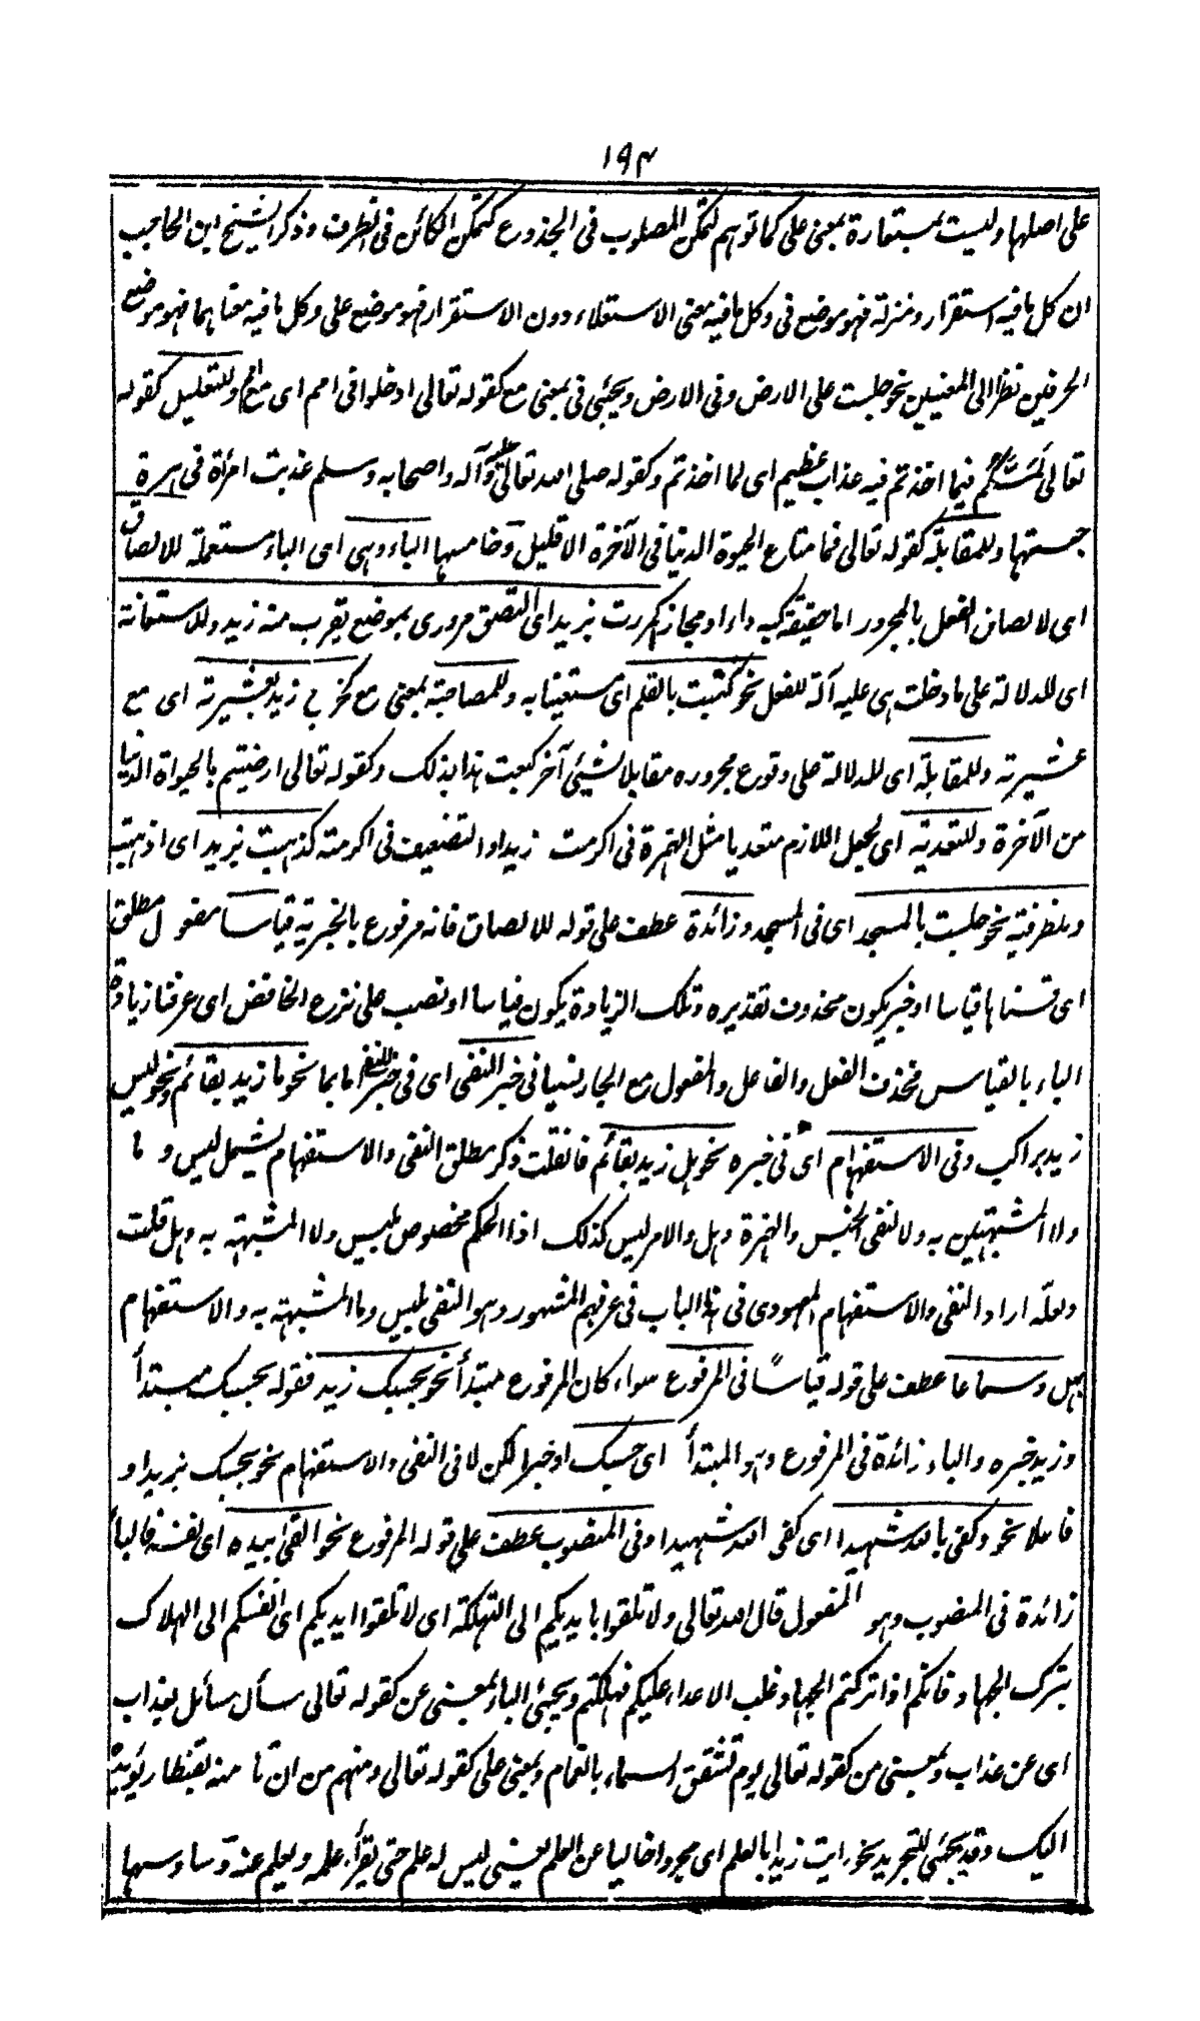 ۱۹۴
على اصلها وليست بمستعارة بمعنى على كما توهم لتمكن المصلوب فى الجذوع كتمكن الكائن فى الظرف وذكر الشيخ ابن الحاجب
ان كل ما فيه استقرار ومنزلة فهو موضع فى وكل ما فيه معنى الاستعلاء دون الاستقرار فهو موضع على وكل ما فيه معناهما فهو موضع
الحرفين نظرا الى المعنيين نحو جلست على الارض وفى الارض ويجئى فى بمعنى مع كقوله تعالى ادخلوا فى امم اى مع امم وللتعليل كقوله
تعالى لمسكم فيما اخذتم فيه عذاب عظيم اى لما اخذتم وكقوله صلى الله تعالى عليه وآله واصحابه وسلم عذبت امرأة فى هرة
حبستها وللمقابلة كقوله تعالى فما متاع الحيوة الدنيا فى الآخرة الا قليل وخامسها الباء وهى اى الباء مستعملة للالصاق
اى لالصاق الفعل بالمجرور اما حقيقة كبه داء او مجاز كمررت بزيد اى التصق مرورى بموضع يقرب منه زيد وللاستعانة
اى للدلالة على ما دخلت هى عليه آلة للفعل نحو كتبت بالقلم اى مستعينا به وللمصاحبة بمعنى مع كخرج زيد بعشيرته اى مع
عشيرته وللمقابلة اى للدلالة على وقوع مجروره مقابلا لشئ آخر كبعت هذا بذلك وكقوله تعالى ارضيتم بالحيواة الدنيا
من الآخرة وللتعدية اى لجعل اللازم متعديا مثل الهمزة فى اكرمت زيدا والتضعيف فى اكرمته كذهبت بزيد اى اذهبته
وللظرفية نحو جلست بالمسجد اى فى المسجد وزائدة عطف على قوله للالصاق فانه مرفوع بالخبرية قياسا مفعول مطلق
اى قسناها قياسا او خبر يكون محذوف تقديره وتلك الزيادة يكون قياسا او نصب على نزع الخافض اى عرفنا زيادة
الباء بالقياس فحذف الفعل والفاعل والمفعول مع الجار نسيا فى خبر النفى اى فى خبر النفى اما بما نحو ما زيد بقائم ونحو ليس
زيد براكب وفى الاستفهام اى فى خبره نحو هل زيد بقائم فان قلت ذكر مطلق النفى والاستفهام يشمل ليس و ما
ولا المشبهتين به ولا لنفى الجنس والهمزة وهل والامر ليس كذلك اذ الحكم مخصوص بليس ولا المشبهته به وهل قلت
ولعله اراد النفى والاستفهام المعهودى فى هذا الباب فى عرفهم المشهور وهو النفى بليس وما المشبهته به والاستفهام
بهل وسماعا عطف على قوله قياسًا فى المرفوع سواء كان المرفوع مبتدأ نحو بحسبك زيد فقوله بحسبك مبتدأ
وزيد خبره والباء زائدة فى المرفوع وهو المبتدأ اى حسبك او خبرا لكن لا فى النفى والاستفهام نحو بحسبك بزيد او
فاعلا نحو وكفى بالله شهيدا اى كفى الله شهيدا وفى المنصوب عطف على قوله المرفوع نحو القى بيده اى نفسه فالباء
زائدة فى المنصوب وهو المفعول قال الله تعالى ولا تلقوا بايديكم الى التهلكة اى لا تلقوا ايديكم اى انفسكم الى الهلاك
بترك الجهاد فانكم اذا تركتم الجهاد غلب الاعداء عليكم فهلكتم ويجئى الباء بمعنى عن كقوله تعالى سأل سائل بعذاب
اى عن عذاب وبمعنى من كقوله تعالى يوم تشقق السماء بالغمام وبمعنى على كقوله تعالى ومنهم من ان تامنه بقنطار يؤده
اليك وقد يجئى للتجريد نحو رايت زيدا بالعلم اى مجردا خاليا عن العلم يعنى ليس له علم حتى يقرأ علمه ويعلم عنه وسادسها